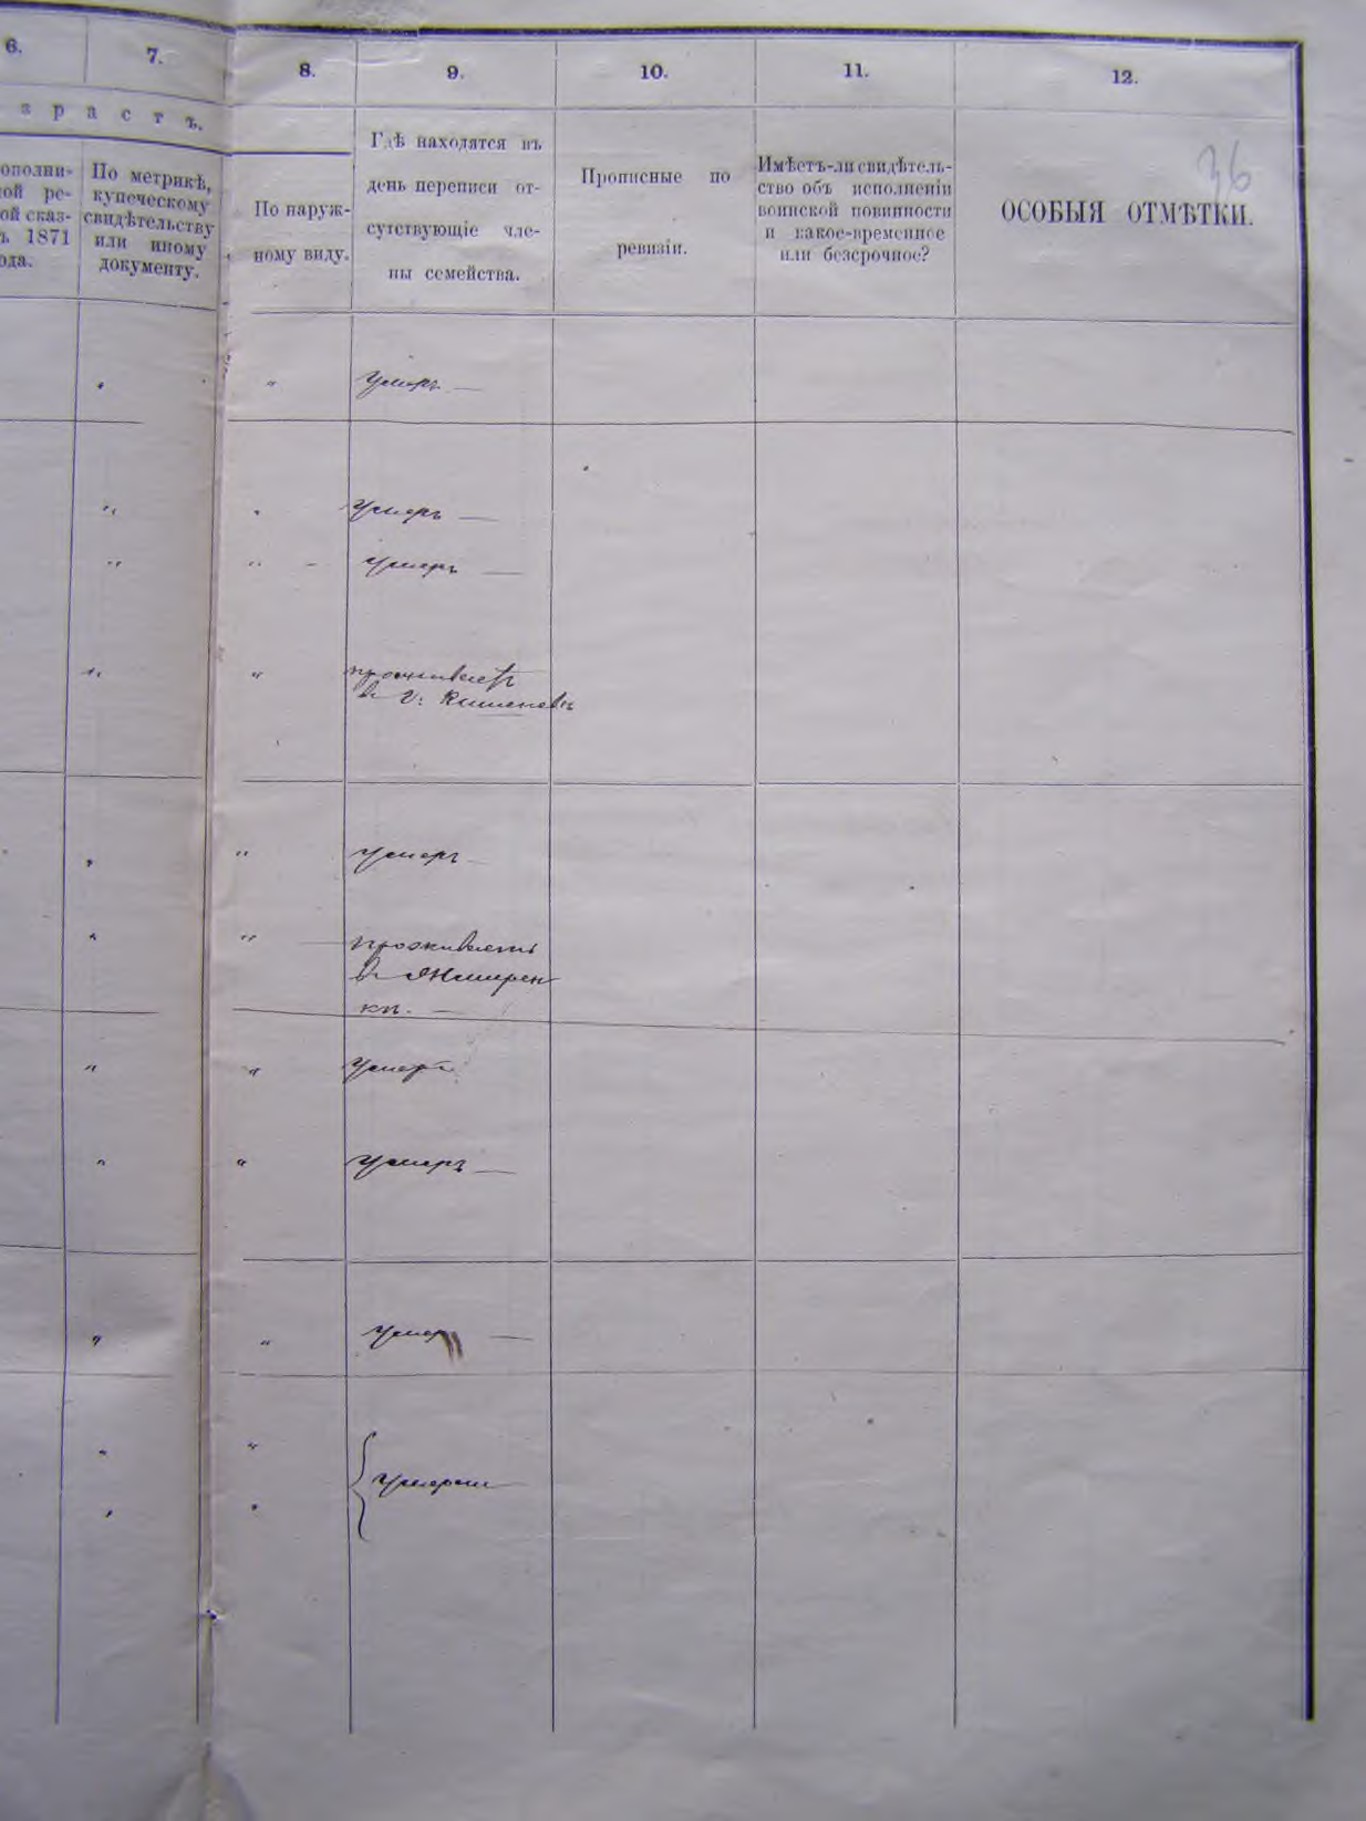 6.
7.
8.
9.
10.
11.
12.
зрастъ.
ополни-
ой ре-
ой сказ-
ъ 1871
ода.
По метрикѣ,
купеческому
свидѣтельству
или иному
документу.
По наруж-
ному виду.
Гдѣ находятся въ
день переписи от-
сутствующіе чле-
ны семейства.
Прописные по
ревизіи.
Имѣетъ-ли свидѣтель-
ство объ исполненіи
воинской повинности
и какое-временное
или безсрочное?
ОСОБЫЯ ОТМѢТКИ.
36
" " умеръ —
" " умеръ —
" " - умеръ —
" " проживаетъ
въ г: Кишеневѣ
" " умеръ —
" " проживаетъ
въ
кѣ. —
" " умеръ
" " умеръ —
" " умеръ —
" "
умерши
" "